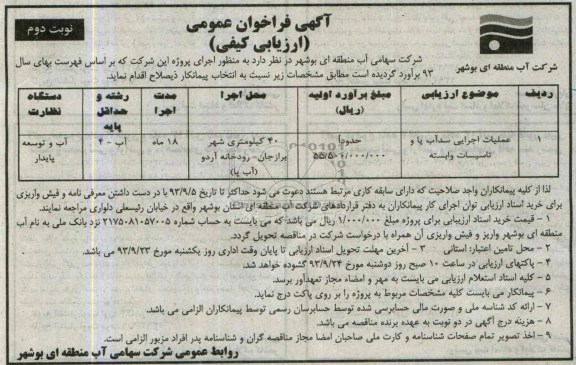 آگهی فراخوان عمومی
(ارزیابی کیفی)
نوبت دوم
شرکت آب منطقه ای بوشهر
شرکت سهامی آب منطقه ای بوشهر در نظر دارد به منظور اجرای پروژه این شرکت که بر اساس فهرست بهای سال
۹۳ برآورد گردیده است مطابق مشخصات زیر نسبت به انتخاب پیمانکار ذیصلاح اقدام نماید.
ردیف موضوع ارزیابی مبلغ برآورد اولیه (ریال) محل اجرا مدت اجرا رشته و حداقل پایه دستگاه نظارت
۱ عملیات اجرایی سدآب پا و تاسیسات وابسته حدوداً ۴۰ کیلومتری شهر برازجان- رودخانه آردو (آب پا) ۱۸ ماه آب - ۴ آب و توسعه پایدار
لذا از کلیه پیمانکاران واجد صلاحیت که دارای سابقه کاری مرتبط هستند دعوت می شود حداکثر تا تاریخ ۹۳/۹/۵ با در دست داشتن معرفی نامه و فیش واریزی
برای خرید اسناد ارزیابی توان اجرای کار پیمانکاران به دفتر قراردادهای شرکت آب منطقه ای استان بوشهر واقع در خیابان رئیسعلی دلواری مراجعه نمایند.
۱ - قیمت خرید اسناد ارزیابی برای پروژه مبلغ ۱/۰۰۰/۰۰۰ ریال می باشد که می بایست به حساب شماره ۲۱۷۵۰۸۱۰۵۷۰۰۵ نزد بانک ملی به نام آب
منطقه ای بوشهر واریز و فیش واریزی آن همراه با درخواست شرکت در مناقصه تحویل گردد.
۲ - محل تامین اعتبار: استانی ۳ - آخرین مهلت تحویل اسناد ارزیابی تا پایان وقت اداری روز یکشنبه مورخ ۹۳/۹/۲۳ می باشد.
۴ - پاکتهای ارزیابی در ساعت ۱۰ صبح روز دوشنبه مورخ ۹۳/۹/۲۴ گشوده خواهد شد.
۵ - کلیه اسناد استعلام ارزیابی می بایست به مهر و امضاء مجاز تعهدآور برسد.
۶ - پیمانکار می بایست کلیه مشخصات مربوط به پروژه را بر روی پاکت درج نماید.
۷ - ارائه کد شناسه ملی و صورت مالی حسابرسی شده توسط حسابرسان رسمی توسط پیمانکاران الزامی می باشد.
۸ - هزینه درج آگهی در دو نوبت به عهده برنده مناقصه می باشد.
۹ - اخذ تصویر تمام صفحات شناسنامه و کارت ملی صاحبان امضا مجاز مناقصه گران و شناسنامه پدر افراد مزبور الزامی است.
روابط عمومی شرکت سهامی آب منطقه ای بوشهر